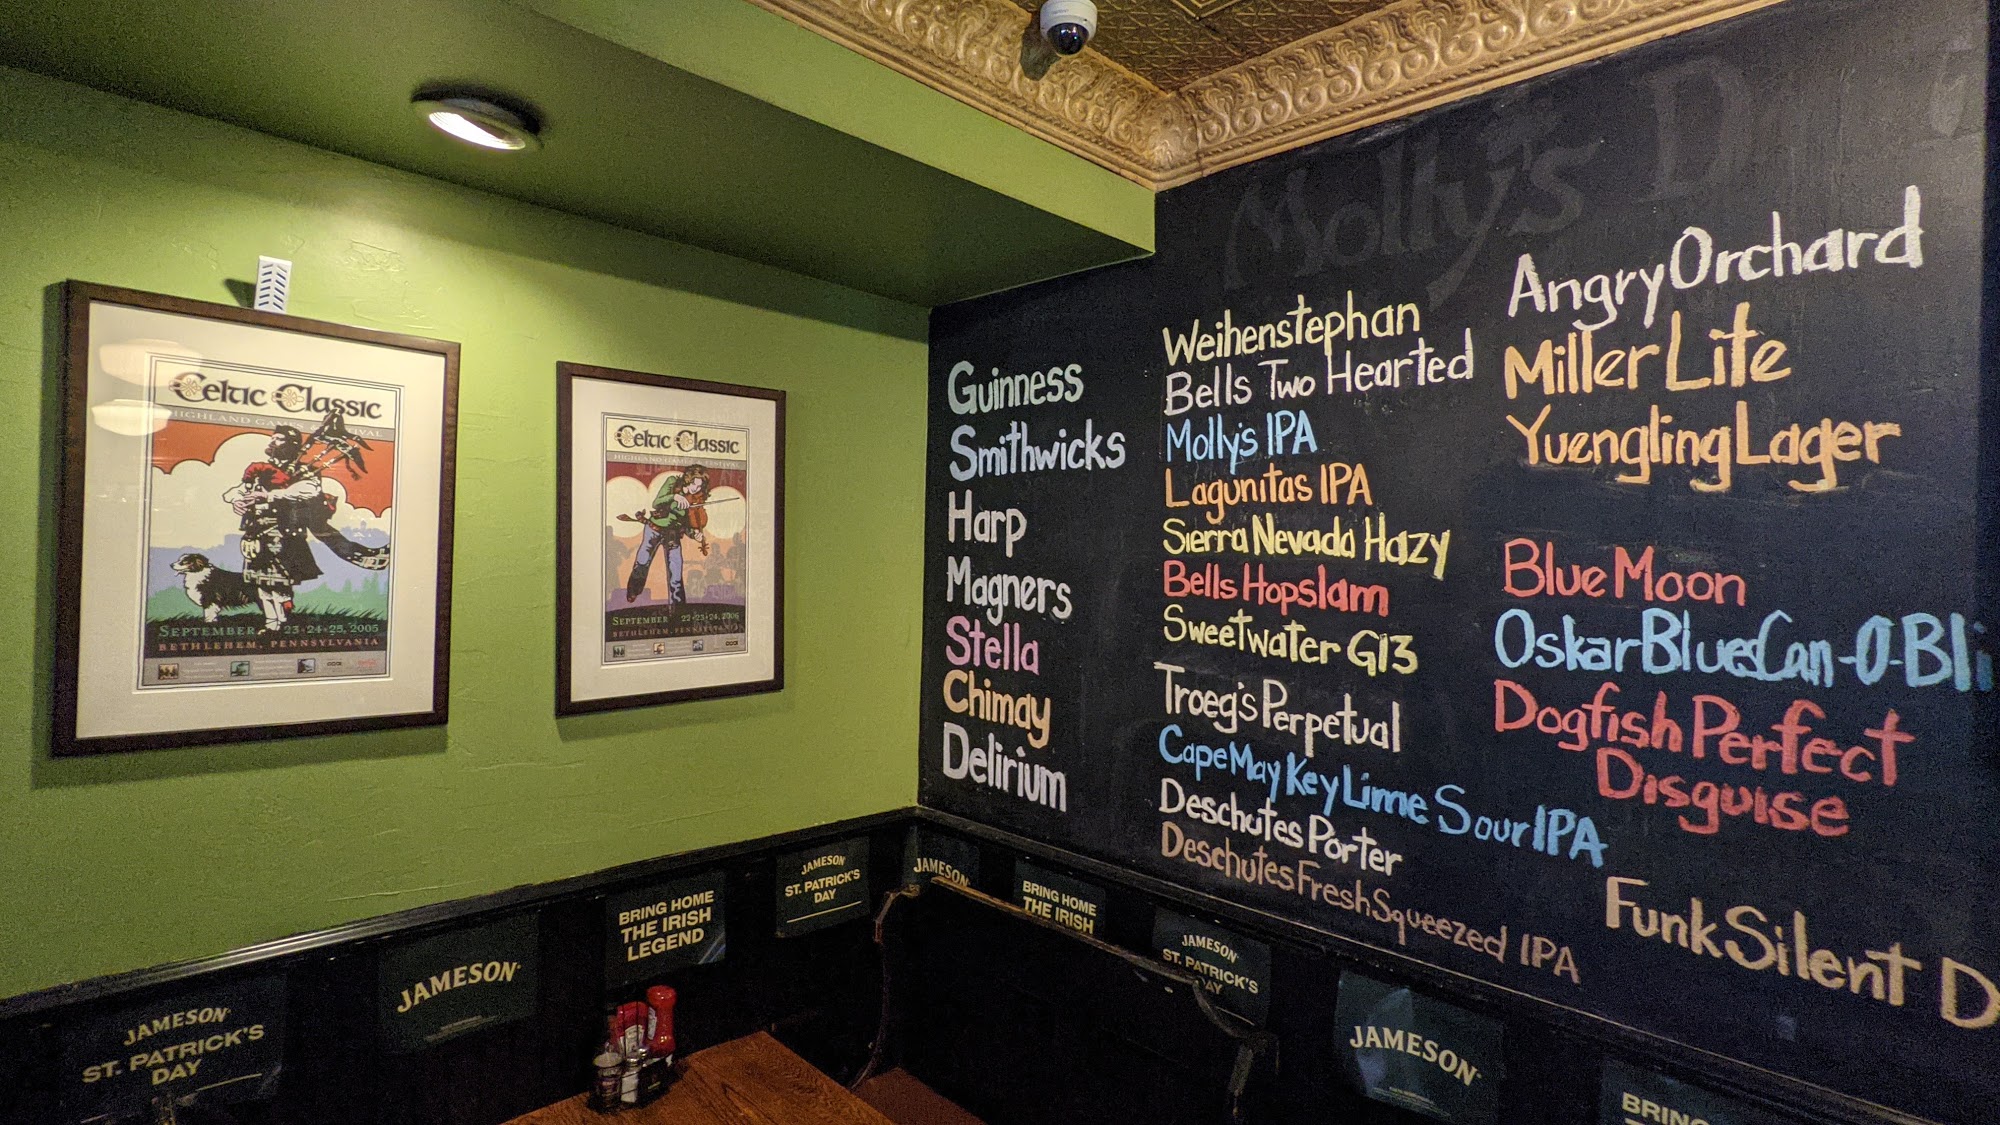 Celtic Classic
HIGHLAND GAMES & FESTIVAL
SEPTEMBER 23·24·25, 2005
BETHLEHEM, PENNSYLVANIA
Celtic Classic
HIGHLAND GAMES & FESTIVAL
SEPTEMBER 22·23·24, 2006
BETHLEHEM, PENNSYLVANIA
Molly's D
Guinness
Smithwicks
Harp
Magners
Stella
Chimay
Delirium
Weihenstephan
Bells Two Hearted
Molly's IPA
Lagunitas IPA
Sierra Nevada Hazy
Bells Hopslam
Sweetwater G13
Troeg's Perpetual
Cape May Key Lime Sour IPA
Deschutes Porter
Deschutes Fresh Squeezed IPA
Angry Orchard
Miller Lite
Yuengling Lager
Blue Moon
Oskar Blues Can-O-Bli
Dogfish Perfect
Disguise
Funk Silent D
JAMESON
ST. PATRICK'S
DAY
JAMESON
BRING HOME
THE IRISH
LEGEND
JAMESON
ST. PATRICK'S
DAY
JAMESON
BRING HOME
THE IRISH
JAMESON
ST. PATRICK'S
DAY
JAMESON
BRING